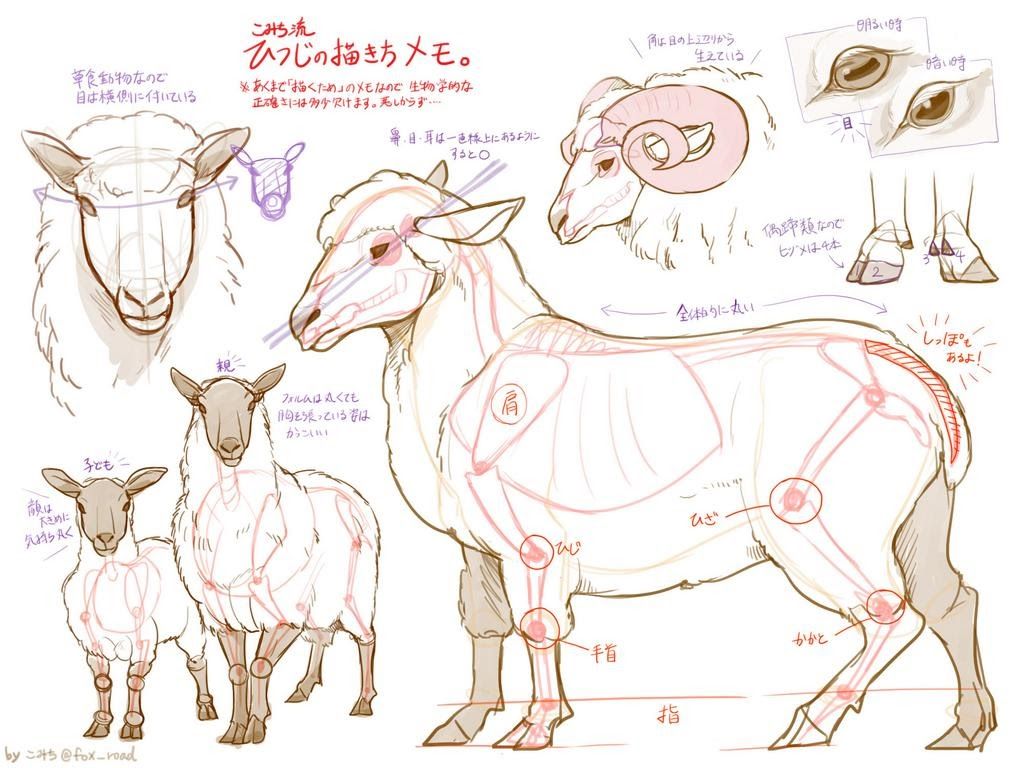 こみち流
ひつじの描きちメモ。
※あくまで「描くため」のメモなので 生物学的な
正確さには多少欠けます。悪しからず‥‥
草食動物なので
目は横側に付いている
鼻・目・耳は一直線上にあるように
すると〇
角は目の上辺りから
生えている
明るい時
暗い時
目
偶蹄類なので
ヒヅメは4本
2
3
4
全体的に丸い
しっぽも
あるよ!
肩
親
フォルムは丸くても
胸を張っている姿は
かっこいい
子ども
顔は
大きめに
気持ち丸く
ひじ
ひざ
手首
かかと
指
by こみち@fox_road